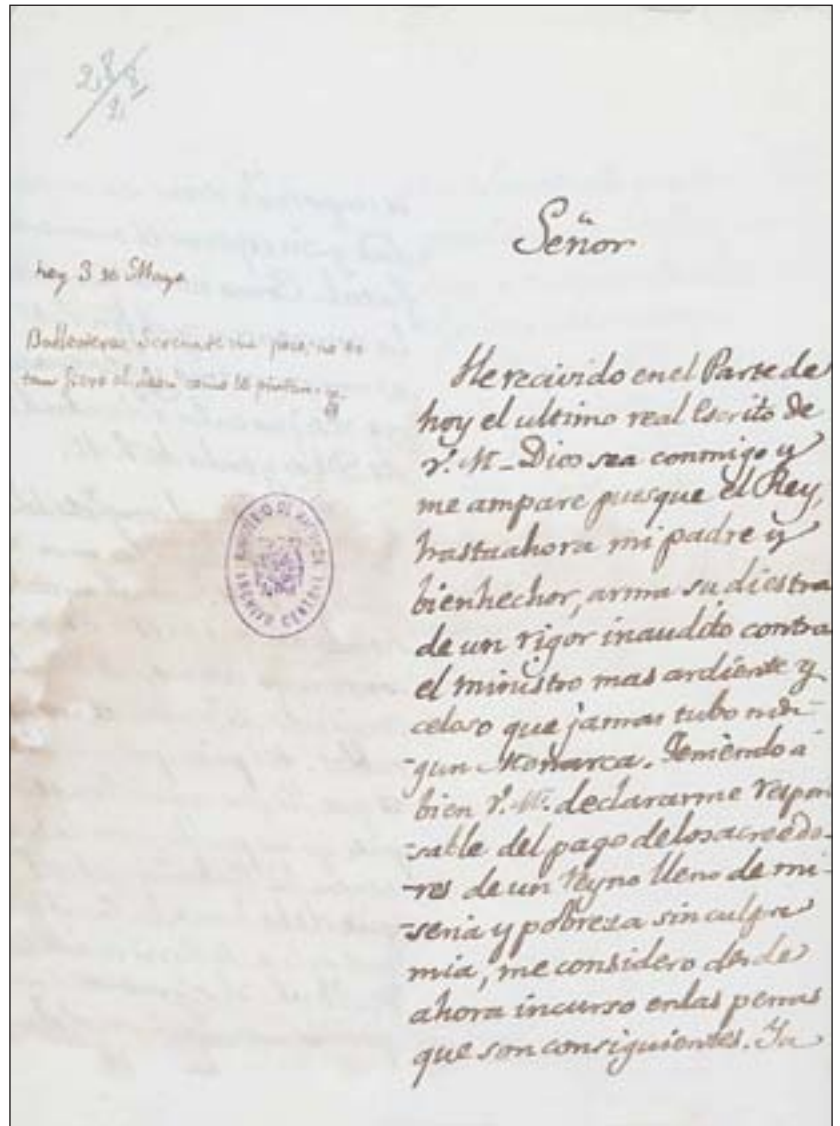 288
2
Señor
hoy 3 de Mayo
Ballesteros serenate un poco, no es
tan fiero el leon como lo pintan.
He recivido en el Parte de
hoy el ultimo real Escrito de
V. M. Dios sea conmigo y
me ampare puesque el Rey,
hasta ahora mi padre y
bienhechor, arma su diestra
de un rigor inaudito contra
el ministro mas ardiente y
celoso que jamas tubo nin-
gun Monarca. Teniendo a
bien V. M. declararme respon
sable del pago de los acreedo-
res de un Reyno lleno de mi-
seria y pobreza sin culpa
mia, me considero desde
ahora incurso en las penas
que son consiguientes. Ya
MINISTERIO DE HACIENDA
ARCHIVO CENTRAL